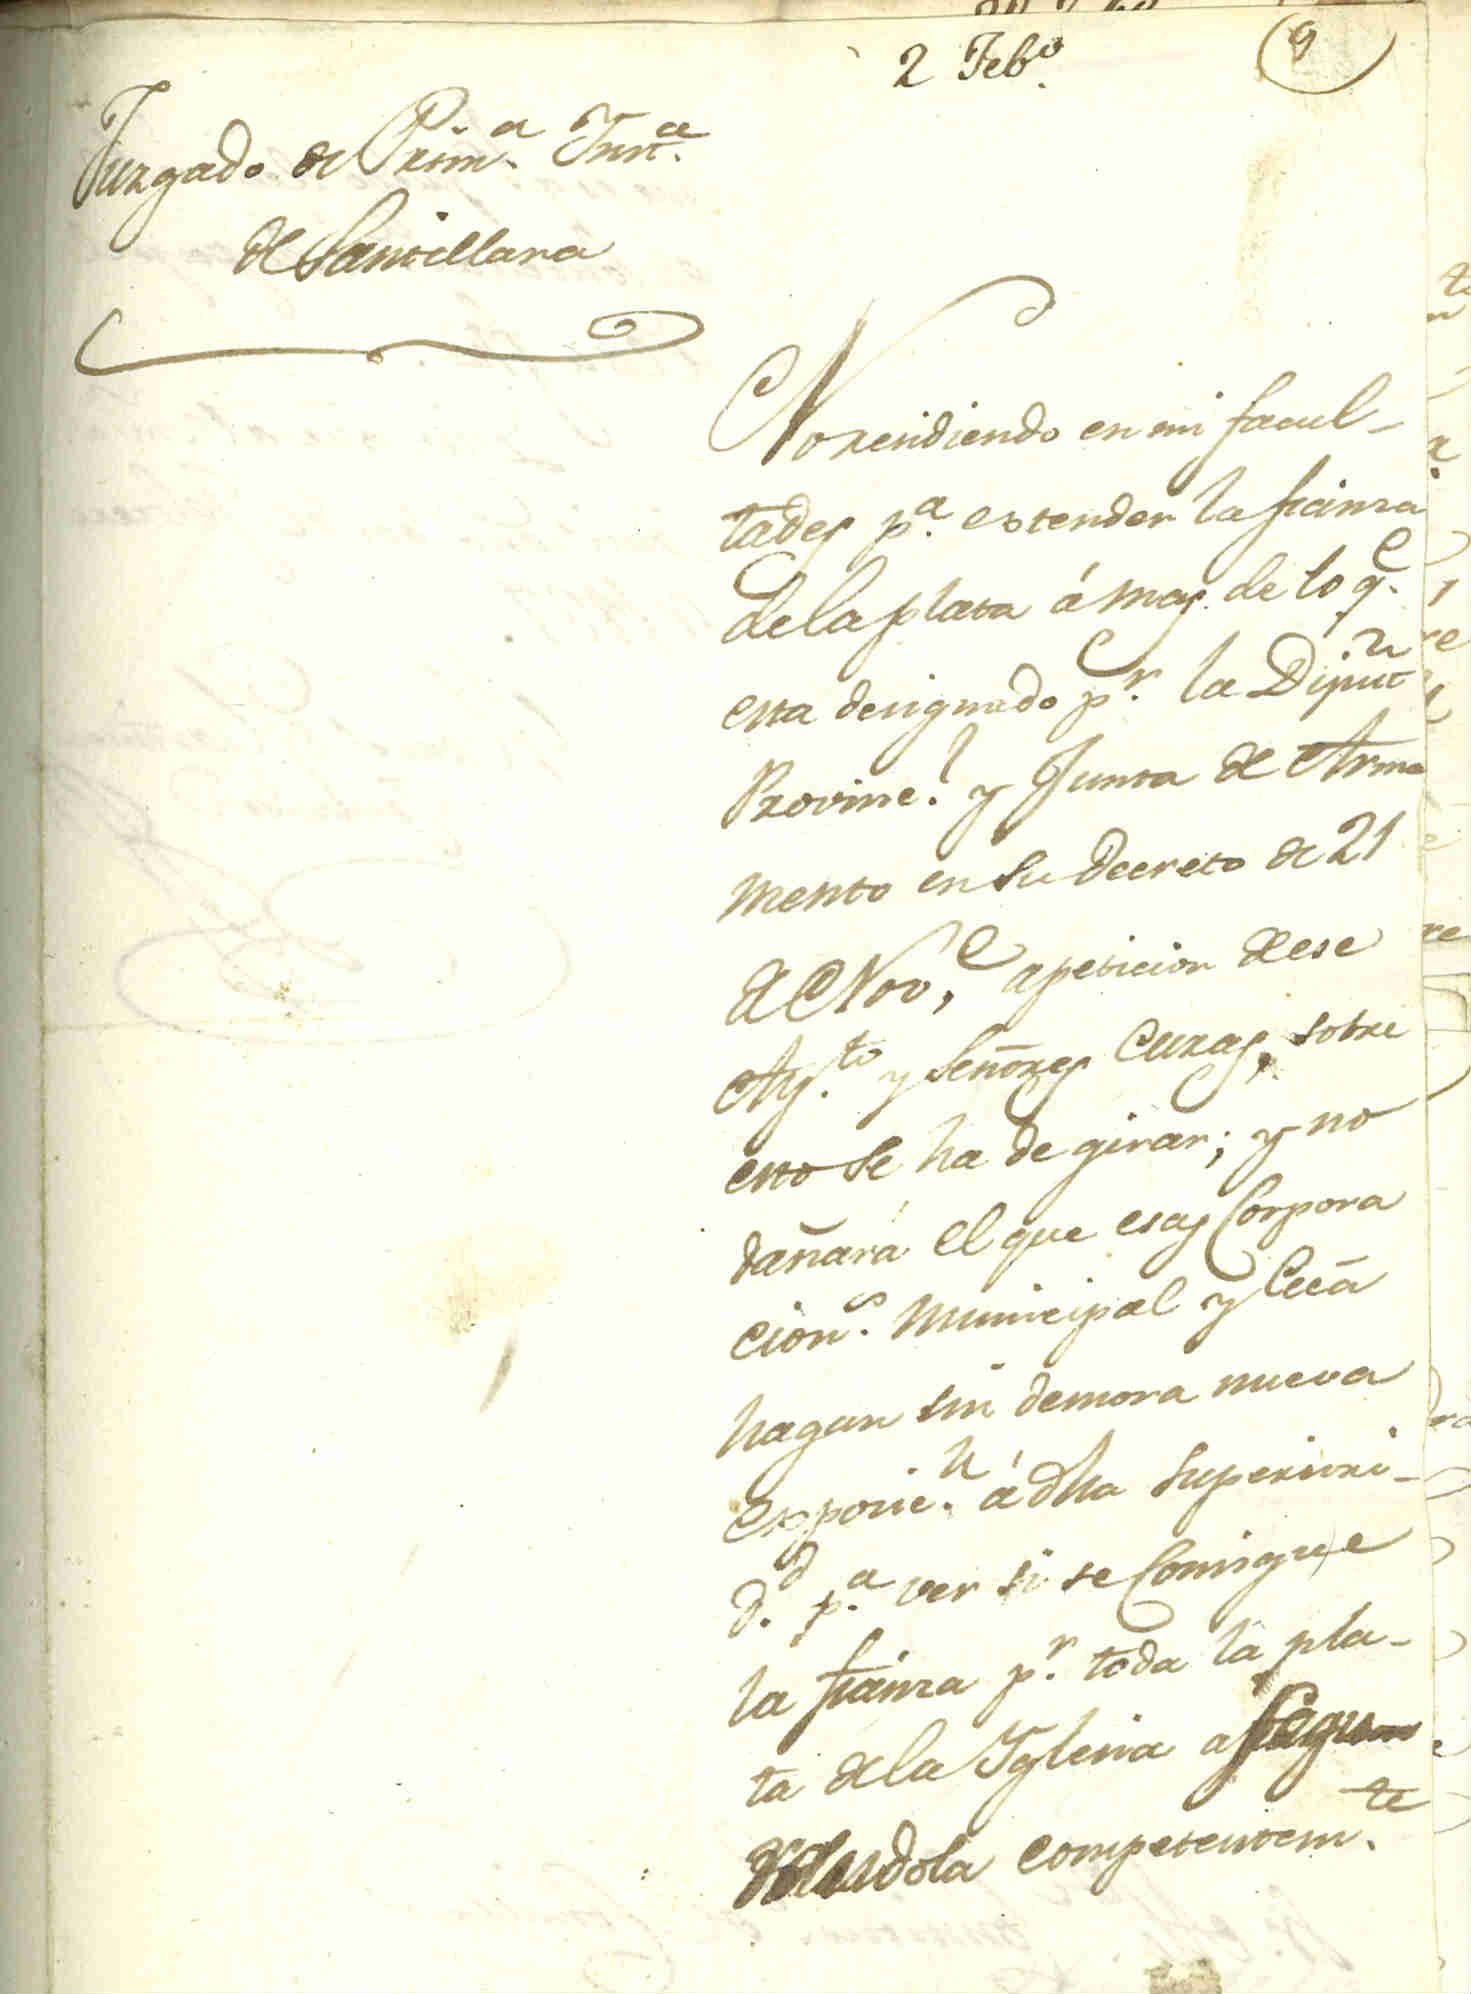 2 Feb.º
9
Juzgado de Prim.ª Inst.ª
de Santillana
No rendiendo en mi facul-
tades p.ª estender la fianza
de la plata á mas de lo q.e
esta designado p.r la Diput.n
Provinc.l y Junta de Arma
mento en su decreto de 21
de Nov.e a peticion de ese
Ay.to y Señores Curas, sobre
esto se ha de girar; y no
dañará el que esas Corpora
cion.s Municipal y Ecca
hagan sin demora nueva
exposic.n á dha Superiori-
d.d p.ª ver si se consigue
la fianza p.r toda la pla-
ta de la Yglesia asegu
randola competentem.te